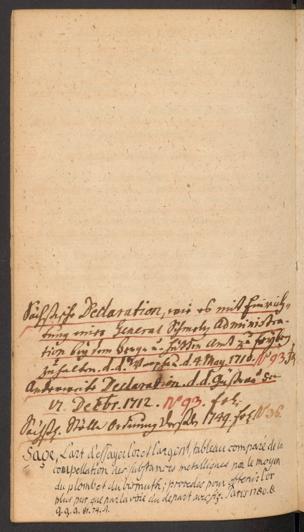 Sächsische Declaration, wie es mit Einrich-
tung einer General Schmelz Administra-
tion bey dem Berg- u. Hütten Amt zu
zu halten. d. d. Warschau d. 4 May. 1710. N° 93.
Declaration. d. d.
VI. Decbr. 1712. N° 93. fol.
Sächß. Ordnung Dreßd. 1749. fol. N° 36.
Sage, L'art d'essayer l'or et l'argent, tableau comparé de la
coupellation des substances métalliques par le moyen
du plomb et du bismuth; procedés pour obtenir l'or
plus pur que par la voie du depart avec fig. Paris 1780. 8.